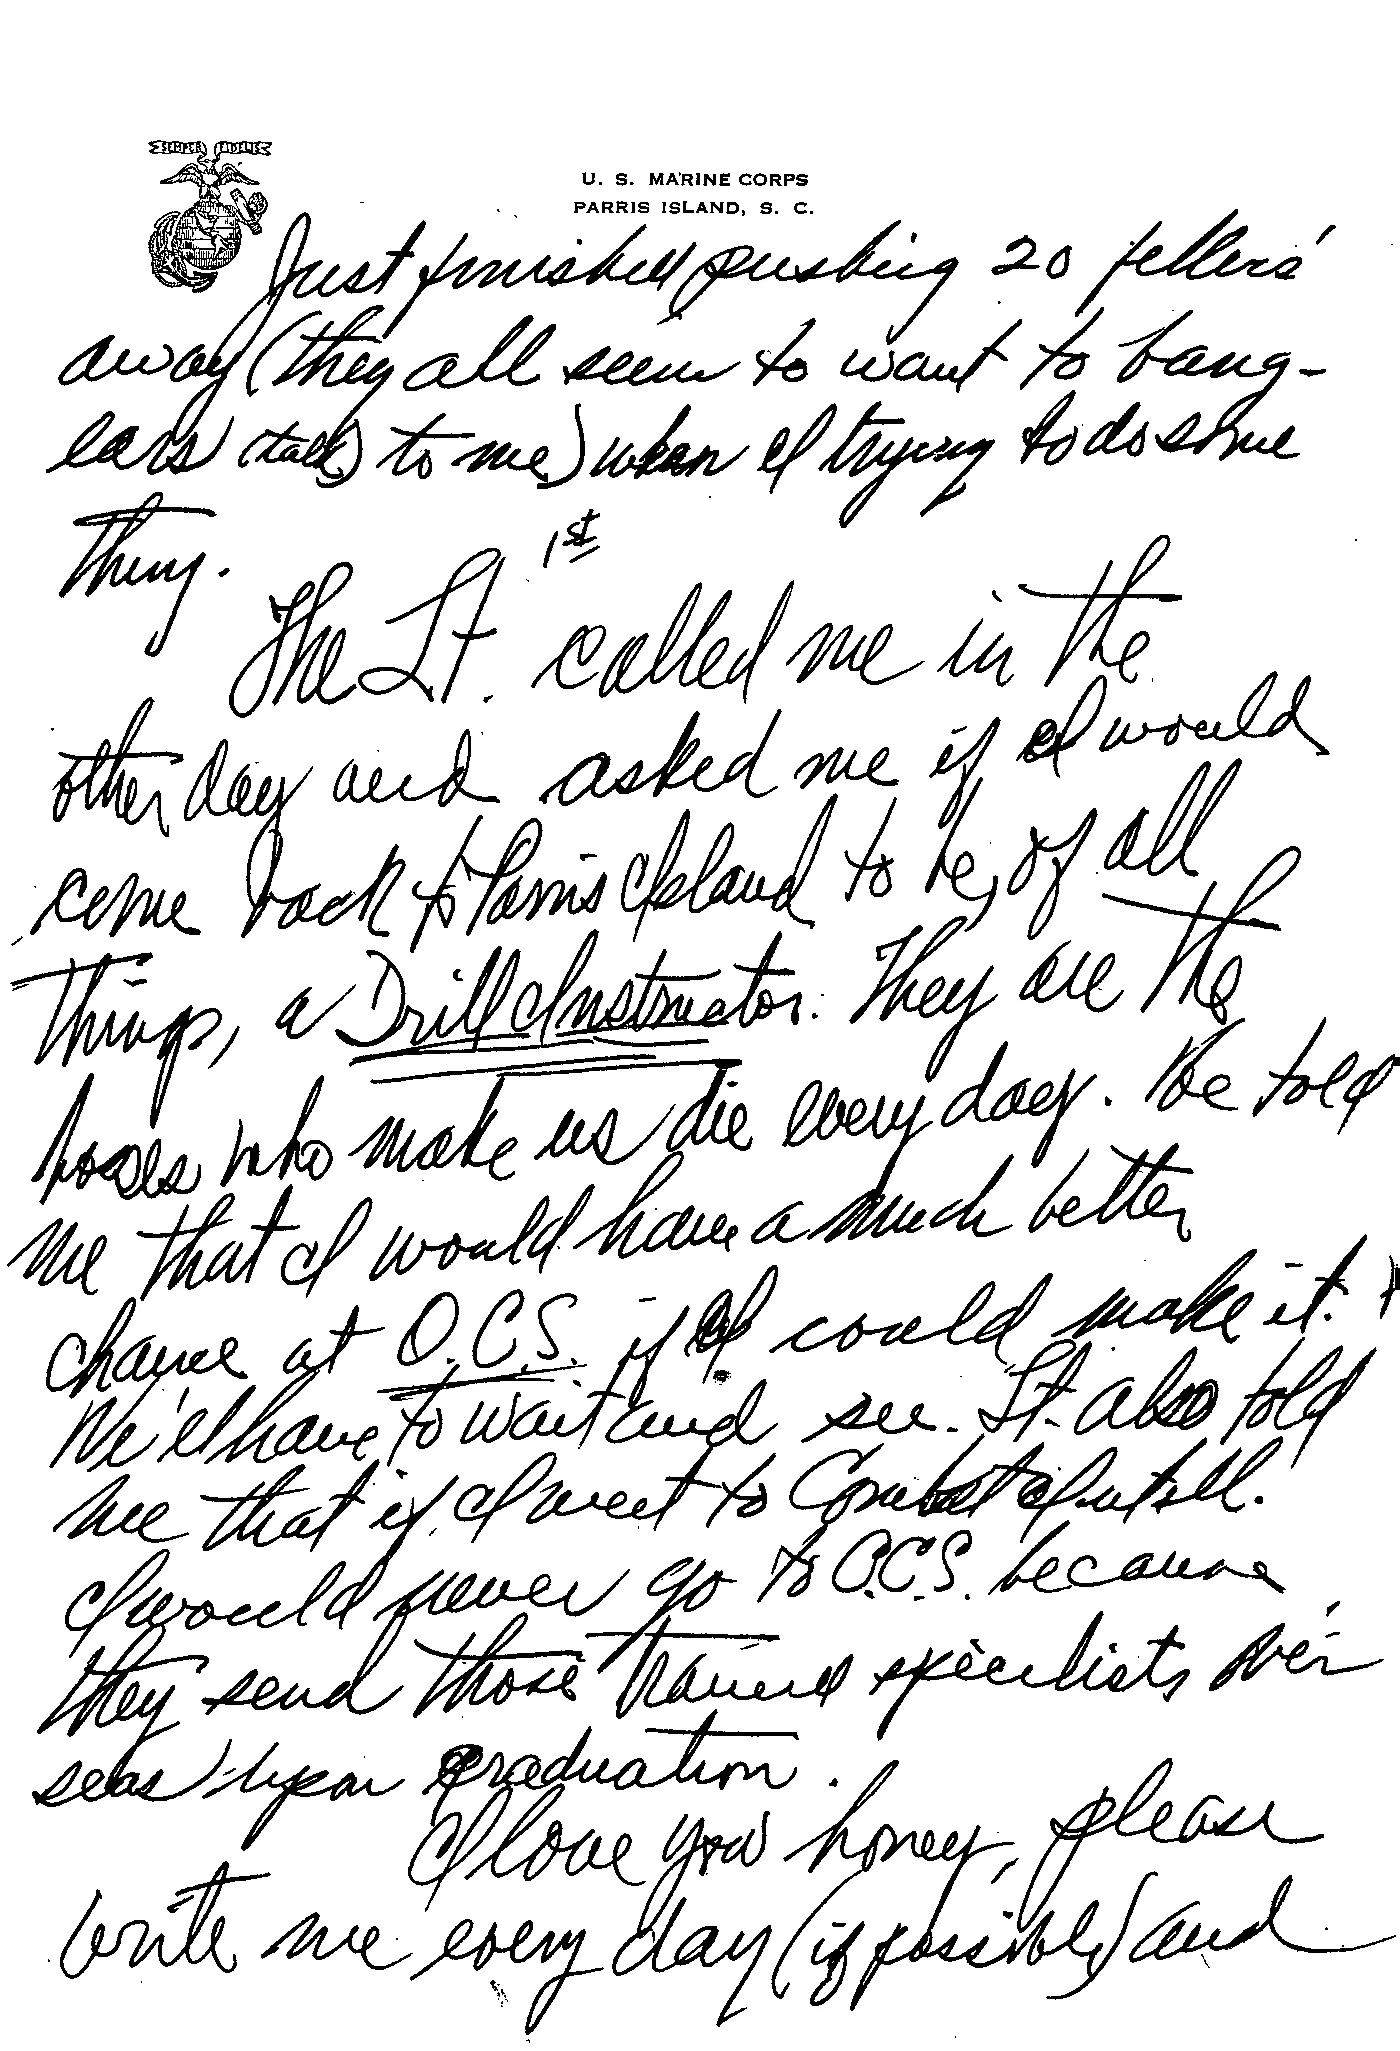 SEMPER FIDELIS
U. S. MARINE CORPS
PARRIS ISLAND, S. C.
Just finished pushing 20 fellers'
away (they all seem to want to bang-
ears (talk) to me) when I trying to do some
thing.
1st
The Lt. called me in the
other day and asked me if I would
come back to Parris Island to be, of all
things, a Drill Instructor. They are the
bosses who make us die every day. He told
me that I would have a much better
chance at O.C.S. if I could make it.
We'll have to wait and see. Lt. also told
me that if I went to Combat Intell.
I would never go to O.C.S. because
they send those trained specilists over
seas upon graduation.
I love you honey, please
write me every day (if possible) and